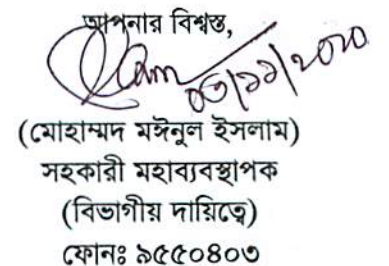 আপনার বিশ্বস্ত,
০৩/১১/২০২০
(মোহাম্মদ মঈনুল ইসলাম)
সহকারী মহাব্যবস্থাপক
(বিভাগীয় দায়িত্বে)
ফোনঃ ৯৫৫০৪০৩